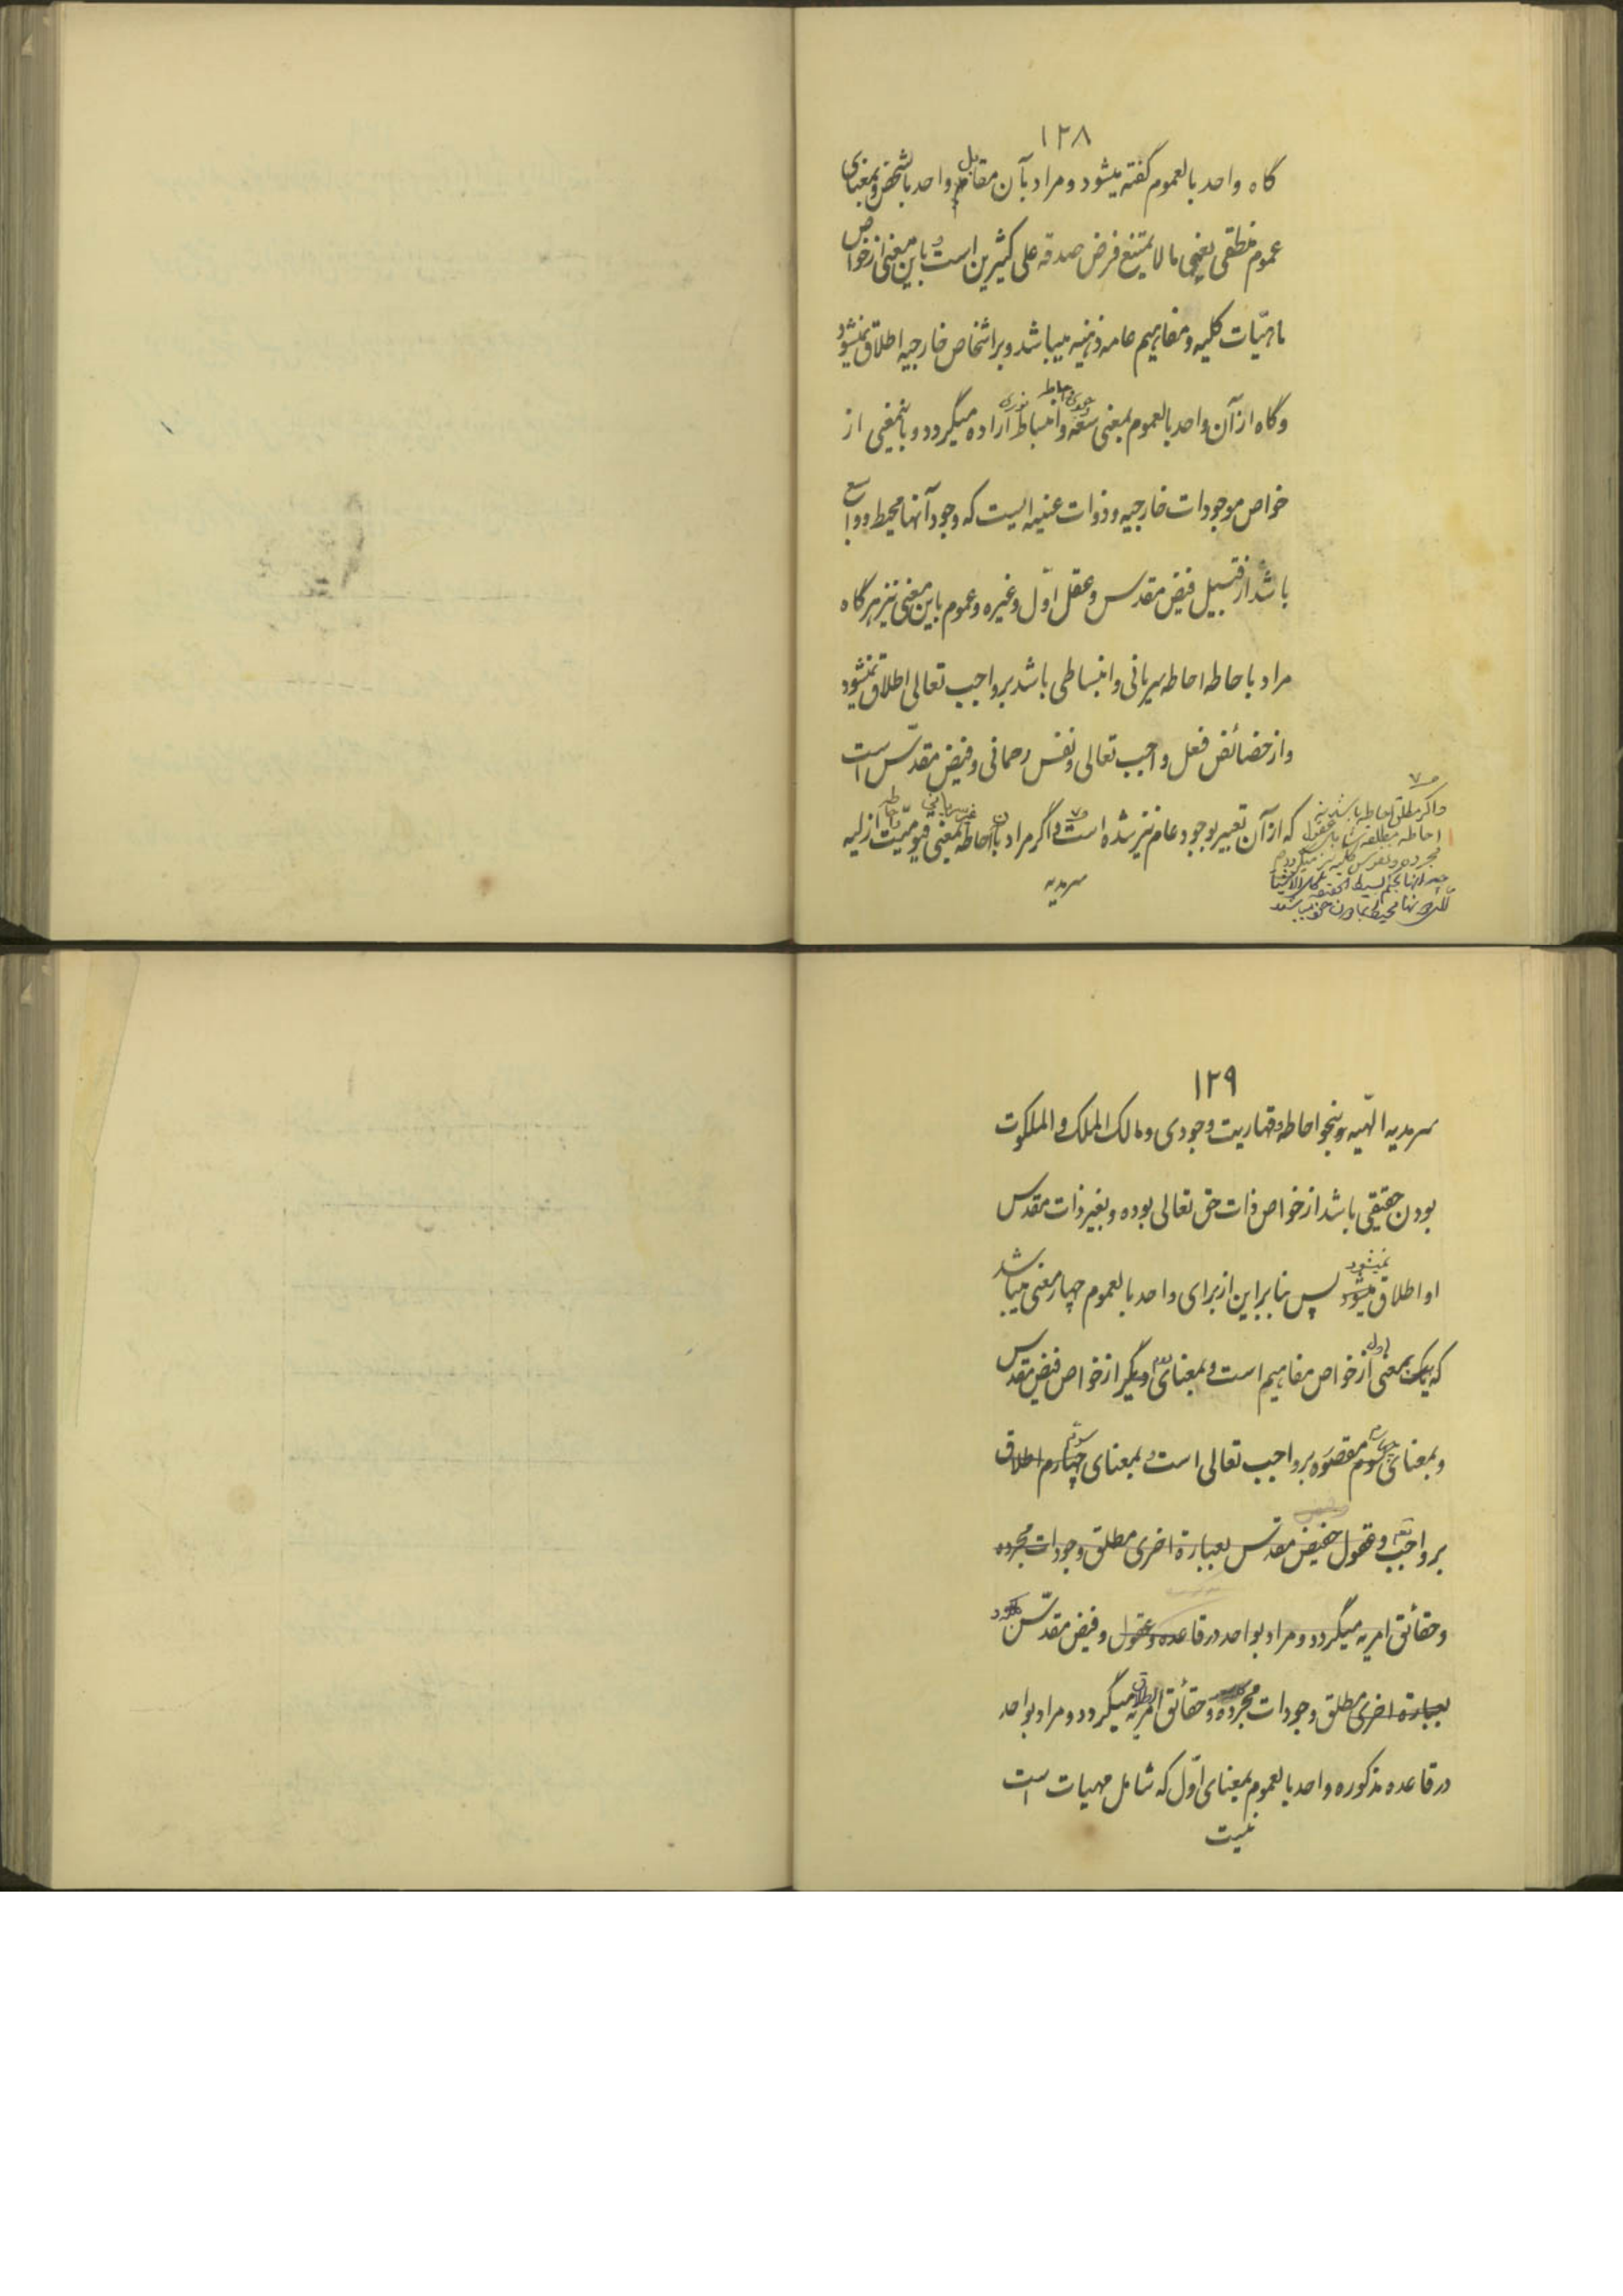 ١٢٨
گاه واحد بالعموم گفته میشود و مراد بآن مقابل واحد بالشخص و بمعنای
عموم منطقی یعنی ما لا یمتنع فرض صدقه علی کثیرین است و باین معنی از خواص
ماهیّات کلیه و مفاهیم عامه ذهنیه میباشد و بر اشخاص خارجیه اطلاق نمیشود
وگاه از آن واحد بالعموم بمعنی سعه وجودی و احاطه و انبساط نوری اراده میگردد و باینمعنی از
خواص موجودات خارجیه و ذوات عینیه ایست که وجود آنها محیط و واسع
باشد از قبیل فیض مقدس و عقل اوّل و غیره و عموم باین معنی نیز هرگاه
مراد باحاطه احاطه سریانی و انبساطی باشد بر واجب تعالی اطلاق نمیشود
و از خصائص فعل واجب تعالی و نفس رحمانی و فیض مقدّس است
که از آن تعبیر بوجود عام نیز شده است و اگر مراد بآن احاطه غیر سریانی و احاطه بمعنی قیومیّت ازلیه
سرمدیه
واگر مطلق احاطه باشد
احاطه مطلقه شامل عقول
مجرده و نفوس کلیه نیز میگردد
١٢٩
سرمدیه الهّیه و بنحو احاطه و قهاریت وجودی و مالک الملک و الملکوت
بودن حقیقی باشد از خواص ذات حق تعالی بوده و بغیر ذات مقدس
او اطلاق نمیشود پس بنابراین از برای واحد بالعموم چهار معنی میباشد
که یک بمعنی اول از خواص مفاهیم است و بمعنای دوم دیگر از خواص فیض مقدس
و بمعنای سوم چهارم مقصور بر واجب تعالی است و بمعنای چهارم سوم اطلاق
بر واجب تعالی و عقول و فیض مقدس بعبارة اخری مطلق وجودات مجرده
و حقائق امریه میگردد و مراد بواحد در قاعده و عقول و فیض مقدّس
بعبارة اخری مطلق وجودات مجرده و حقائق امریه اطلاق میگردد و مراد بواحد
در قاعده مذکوره واحد بالعموم بمعنای اوّل که شامل مهیات است
نیست